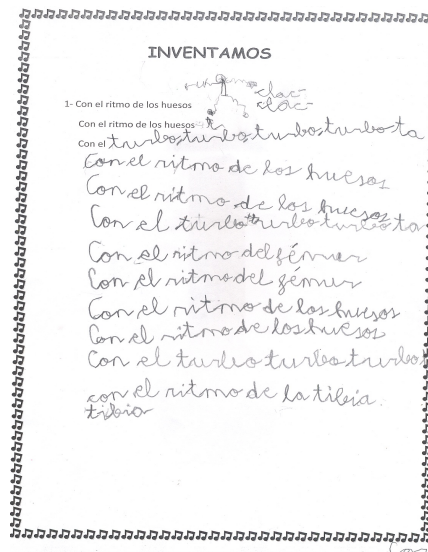 INVENTAMOS
clac-
1- Con el ritmo de los huesos clac-
Con el ritmo de los huesos
Con el turbo,turbo,turbo,turbo ta
Con el ritmo de los huesos
Con el ritmo de los huesos
Con el turbo turbo turbo ta
Con el ritmo del fémur
Con el ritmo del fémur
Con el ritmo de los huesos
Con el ritmo de los huesos
Con el turbo turbo turbo
con el ritmo de la tibia.
tibia